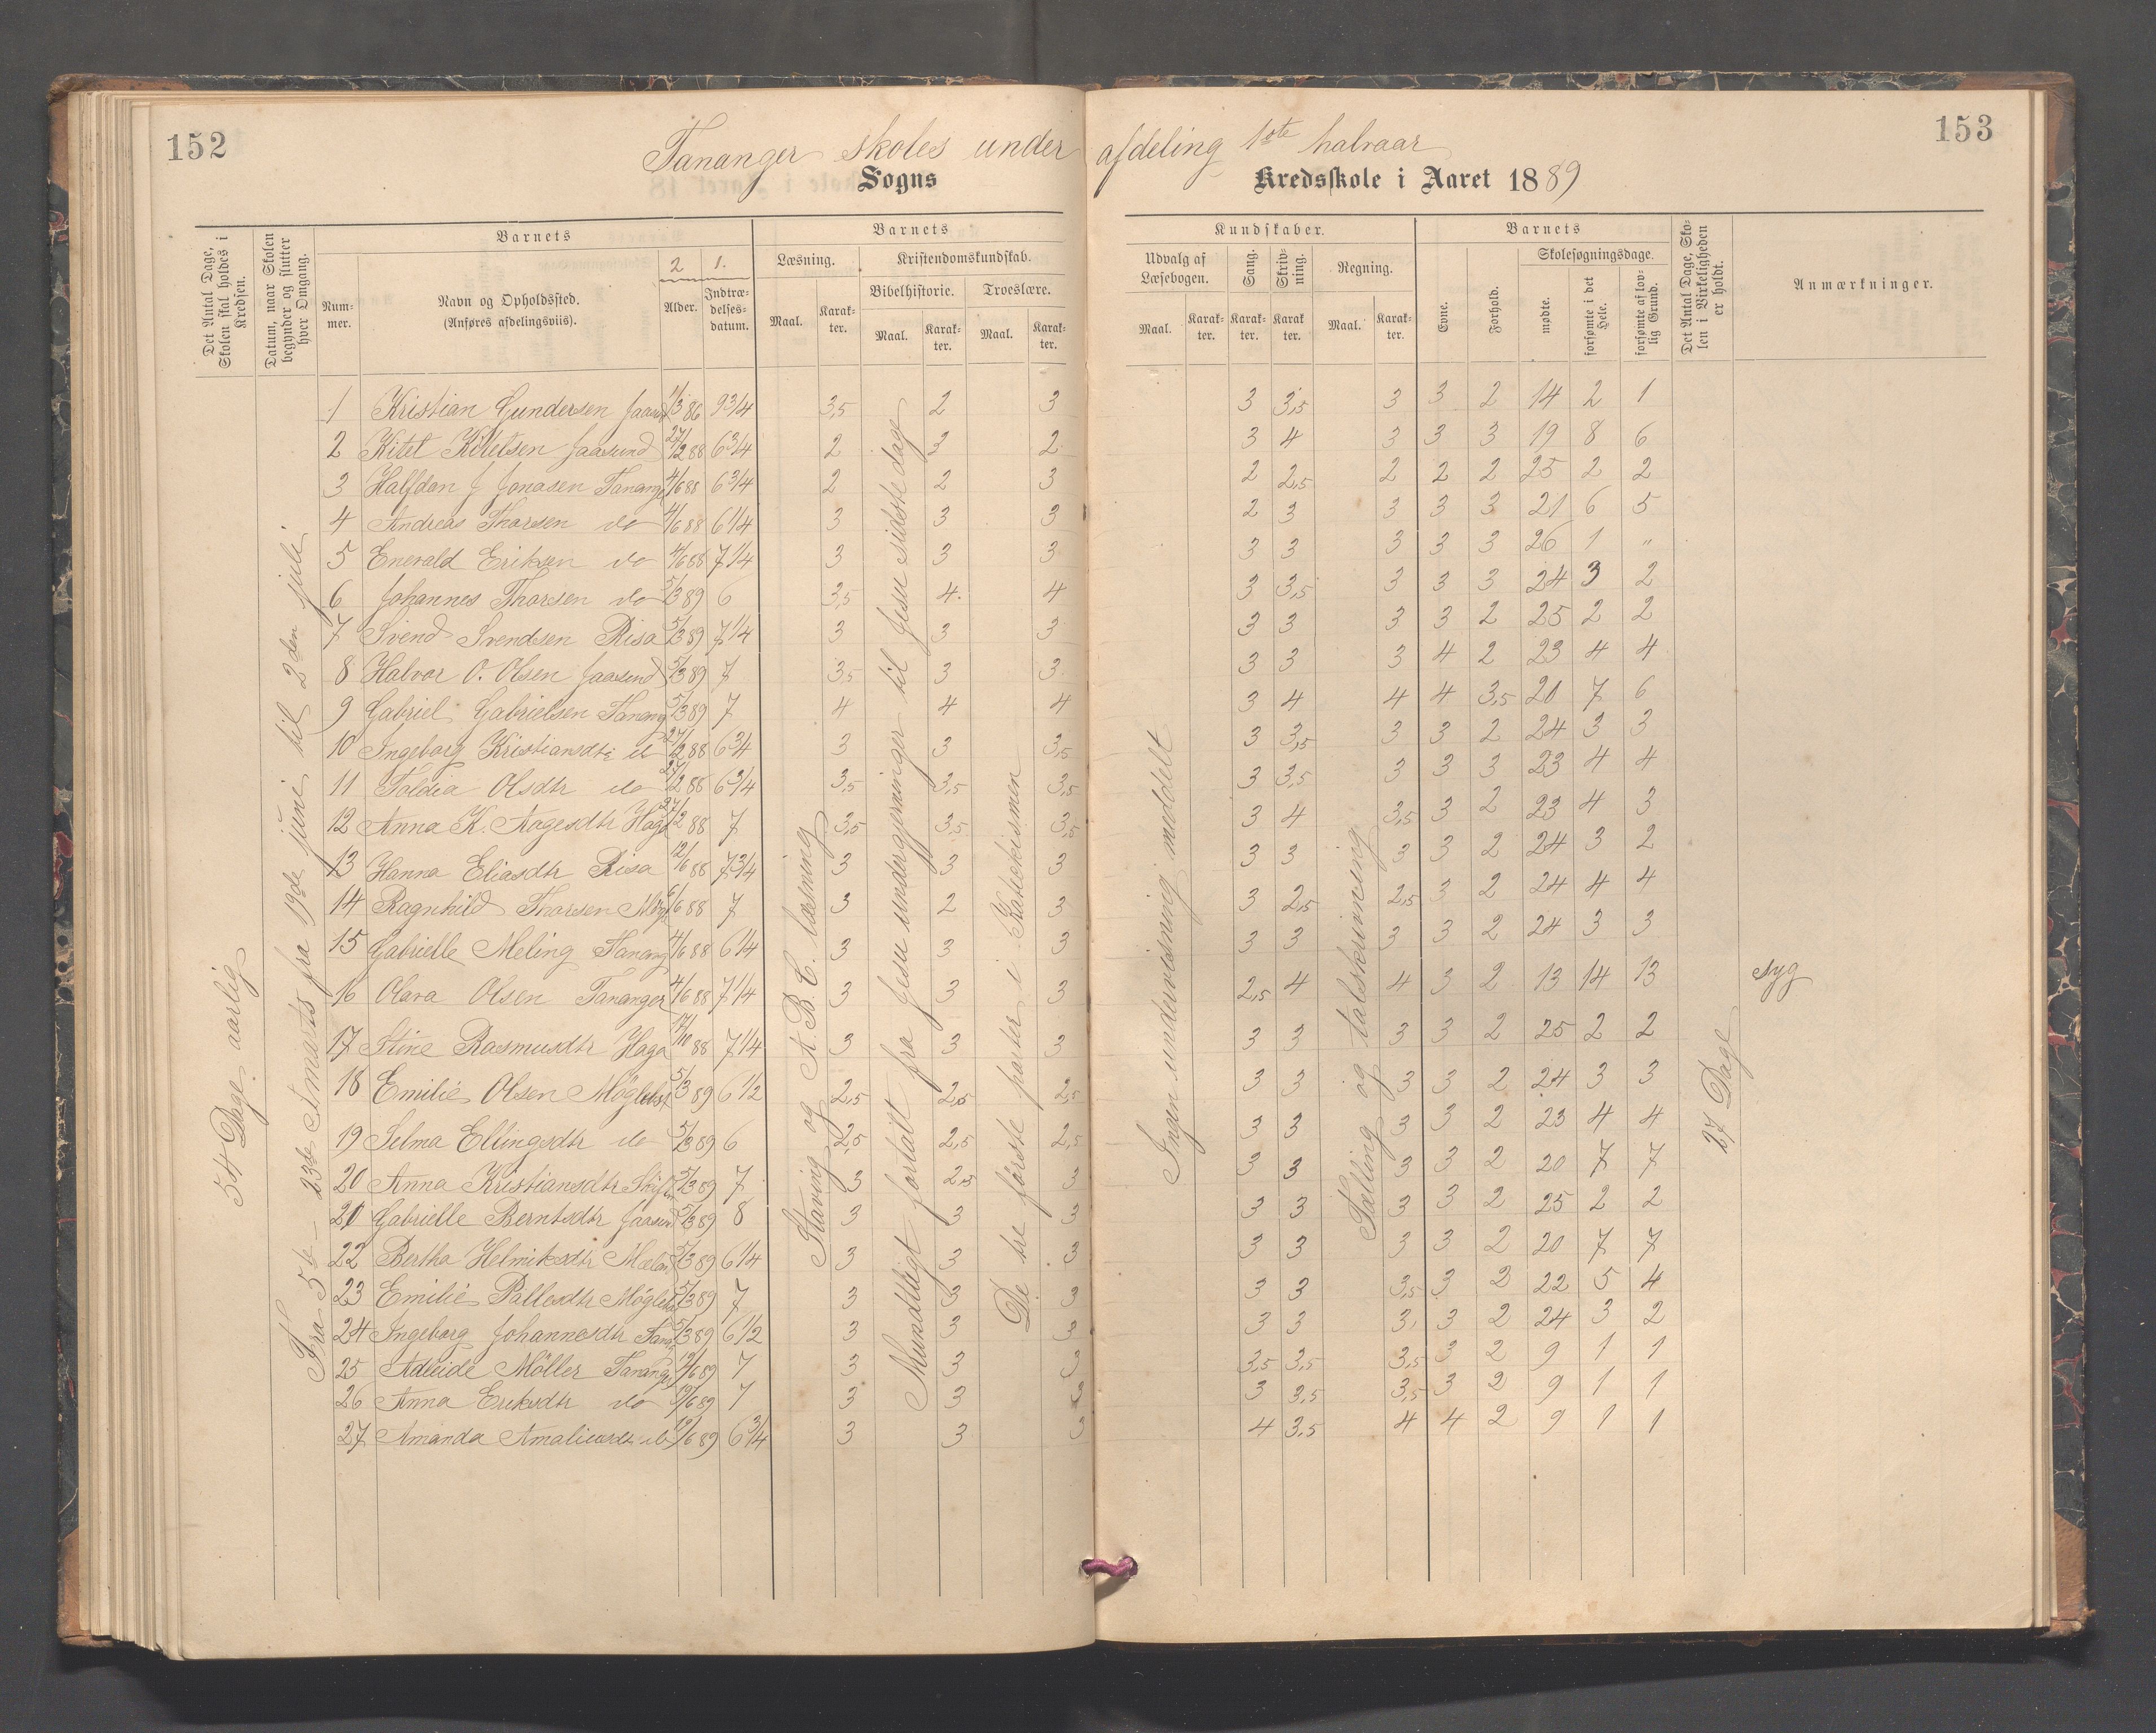 152
153
Tananger skoles under afdeling 1ste halvaar
Sogns Kredsskole i Aaret 1889
Det Antal Dage, Skolen skal holdes i Kredsen.
Datum, naar Skolen begynder og slutter hver Omgang.
Barnets
Nummer.
Navn og Opholdssted. (Anføres afdelingsviis).
2
Alder.
1.
Indtrædelsesdatum.
Barnets
Læsning.
Maal.
Karakter.
Kristendomskundskab.
Bibelhistorie.
Maal.
Karakter.
Troeslære.
Maal.
Karakter.
Kundskaber.
Udvalg af Læsebogen.
Maal.
Karakter.
Sang.
Karakter.
Skrivning.
Karakter.
Regning.
Maal.
Karakter.
Barnets
Evne.
Forhold.
Skolesøgningsdage.
mødte.
forsømte i det Hele.
forsømte af lovlig Grund.
Det Antal Dage, Skolen i Virkeligheden er holdt.
Anmærkninger.
54 Dage aarlig
Fra 5te – 23de marts fra 19de juni til 2den juli
Staving og A.B.C. læsning
Mundtligt fortalt fra Jesu undergjerninger til Jesu sidste dage
De tre første parter i Katekismen
Ingen undervisning meddelt
Tælling og talskrivning
27 Dage
1 Kristian Gundersen Jaasund 1/3 86 9 3/4 3,5 2 3 3 3,5 3 3 2 14 2 1
2 Kitel Kittelsen Jaasund 27/2 88 6 3/4 2 3 2 3 4 3 3 3 19 8 6
3 Halfdan J Jonasen Tananger 4/6 88 6 3/4 2 2 3 2 2,5 2 2 2 25 2 2
4 Andreas Thorsen do 4/6 88 6 1/4 3 3 3 2 3 3 3 3 21 6 5
5 Enevald Eriksen do 4/6 88 7 1/4 3 3 3 3 3 3 3 3 26 1 "
6 Johannes Thorsen do 5/3 89 6 3,5 4 4 3 3,5 3 3 3 24 3 2
7 Svend Svendsen Risa 5/3 89 7 1/4 3 3 3 3 3 3 3 2 25 2 2
8 Halvor O. Olsen Jaasund 5/3 89 7 3,5 3 3 3 3 3 4 2 23 4 4
9 Gabriel Gabrielsen Tanang 5/3 89 7 4 4 4 3 4 4 4 3,5 20 7 6
10 Ingeborg Kristiansdtr do 27/2 88 6 3/4 3 3 3,5 3 3,5 3 3 2 24 3 3
11 Toldia Olsdtr do 27/2 88 6 3/4 3,5 3,5 3,5 3 3,5 3 3 3 23 4 4
12 Anna K. Aagesdtr Haga 27/2 88 7 3,5 3,5 3,5 3 4 3,5 3 2 23 4 3
13 Hanna Eliasdtr Risa 12/6 88 7 3/4 3 3 3 3 3 3 3 2 24 3 2
14 Ragnhild Thorsen Møgl 6/6 88 7 3 2 3 3 2,5 2,5 3 2 24 4 4
15 Gabrielle Meling Tanang 4/6 88 6 1/4 3 3 3 3 3 3 3 2 24 3 3
16 Olava Olsen Tananger 4/6 88 7 1/4 3 3 3 2,5 4 4 3 2 13 14 13 syg
17 Stine Rasmusdtr Haga 17/10 88 7 1/4 3 3 3 3 3 3 3 2 25 2 2
18 Emilie Olsen Møglebst 5/3 89 6 1/2 2,5 2,5 2,5 3 3 3 3 2 24 3 3
19 Selma Ellingsdtr do 5/3 89 6 2,5 2,5 2,5 3 3 3 3 2 23 4 4
20 Anna Kristiansdtr 5/3 89 7 3 2,5 3 3 3 3 3 2 20 7 7
21 Gabrielle Berntsdtr Jaasund 5/3 89 8 3 3 3 3 3 3 3 2 25 2 2
22 Bertha Helmiksdtr Mæland 5/3 89 6 1/4 3 3 3 3 3 3 3 2 20 7 7
23 Emilie Pallesdtr Møglebst 5/3 89 7 3 3 3 3 3 3,5 3 2 22 5 4
24 Ingeborg Johannesdtr Tanang 5/3 89 6 1/2 3 3 3 3 3 3, 3 2 24 3 2
25 Adleide Möller Tanange 19/6 89 7 3 3 3 3,5 3,5 3,5 3 2 9 1 1
26 Anna Eriksdtr do 19/6 89 7 3 3 3 3 3,5 3,5 3 2 9 1 1
27 Amanda Amaliasdtr do 19/6 89 6 3/4 3 3 3 4 3,5 4 4 2 9 1 1